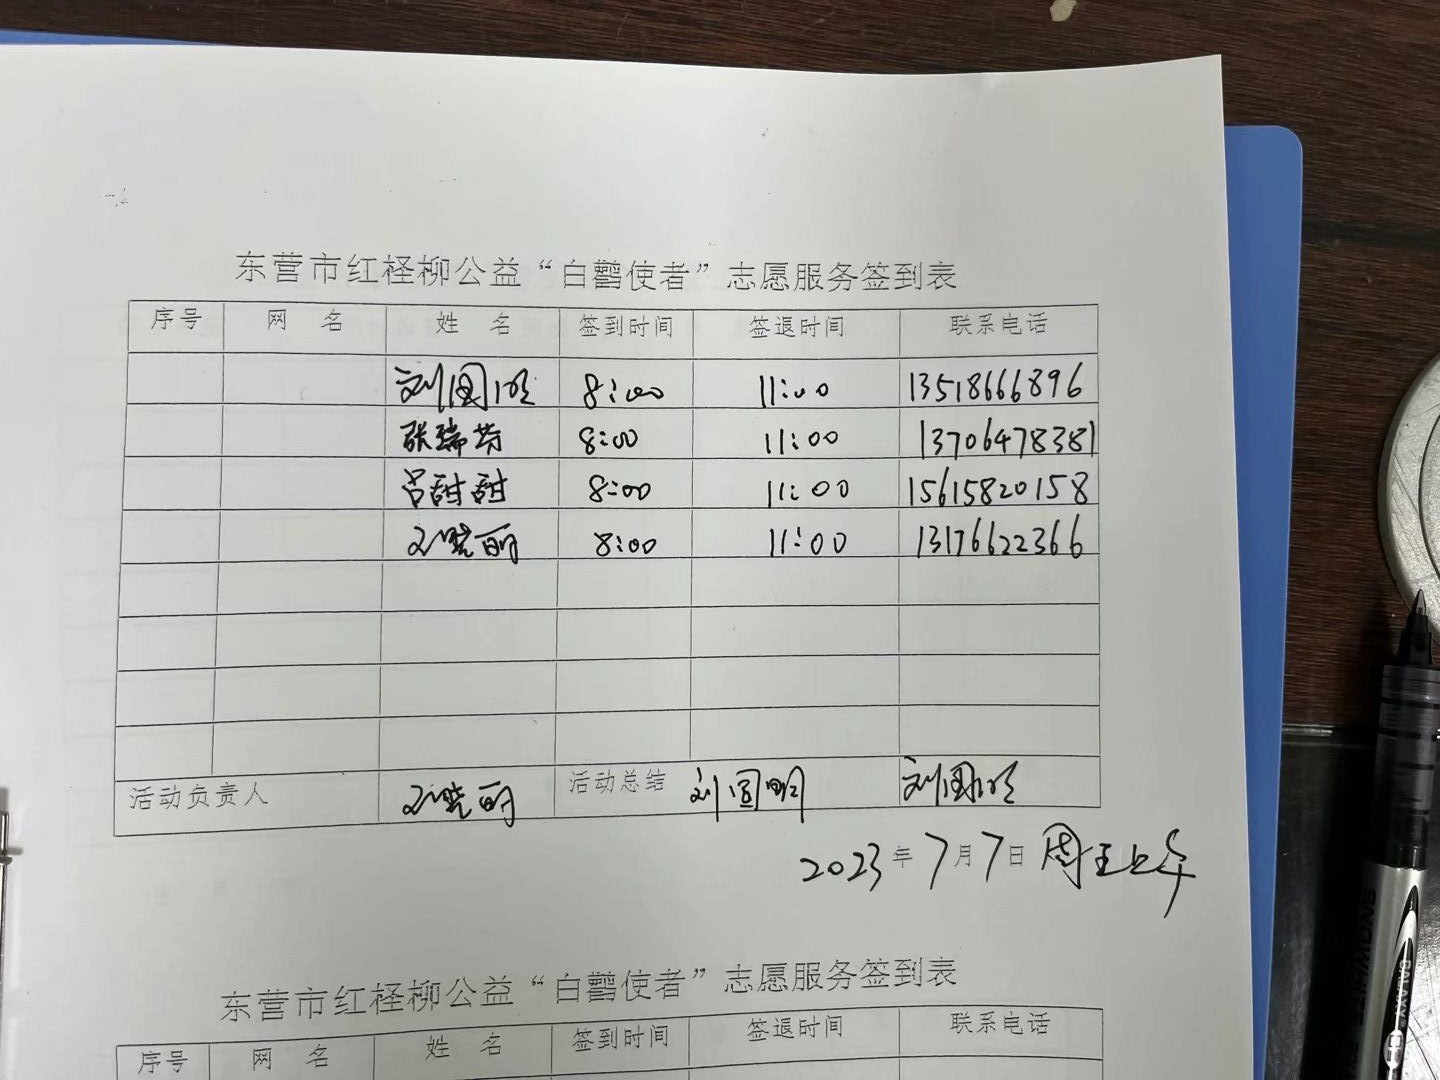 东营市红柽柳公益“白鹳使者”志愿服务签到表
序号 网 名 姓 名 签到时间 签退时间 联系电话
刘国明 8:00 11:00 13518666896
张瑞芬 8:00 11:00 13706478381
吕甜甜 8:00 11:00 15615820158
晓丽 8:00 11:00 13176622366
活动负责人 晓丽 活动总结 刘国明 刘国明
2023年7月7日 周五上午
东营市红柽柳公益“白鹳使者”志愿服务签到表
序号 网 名 姓 名 签到时间 签退时间 联系电话